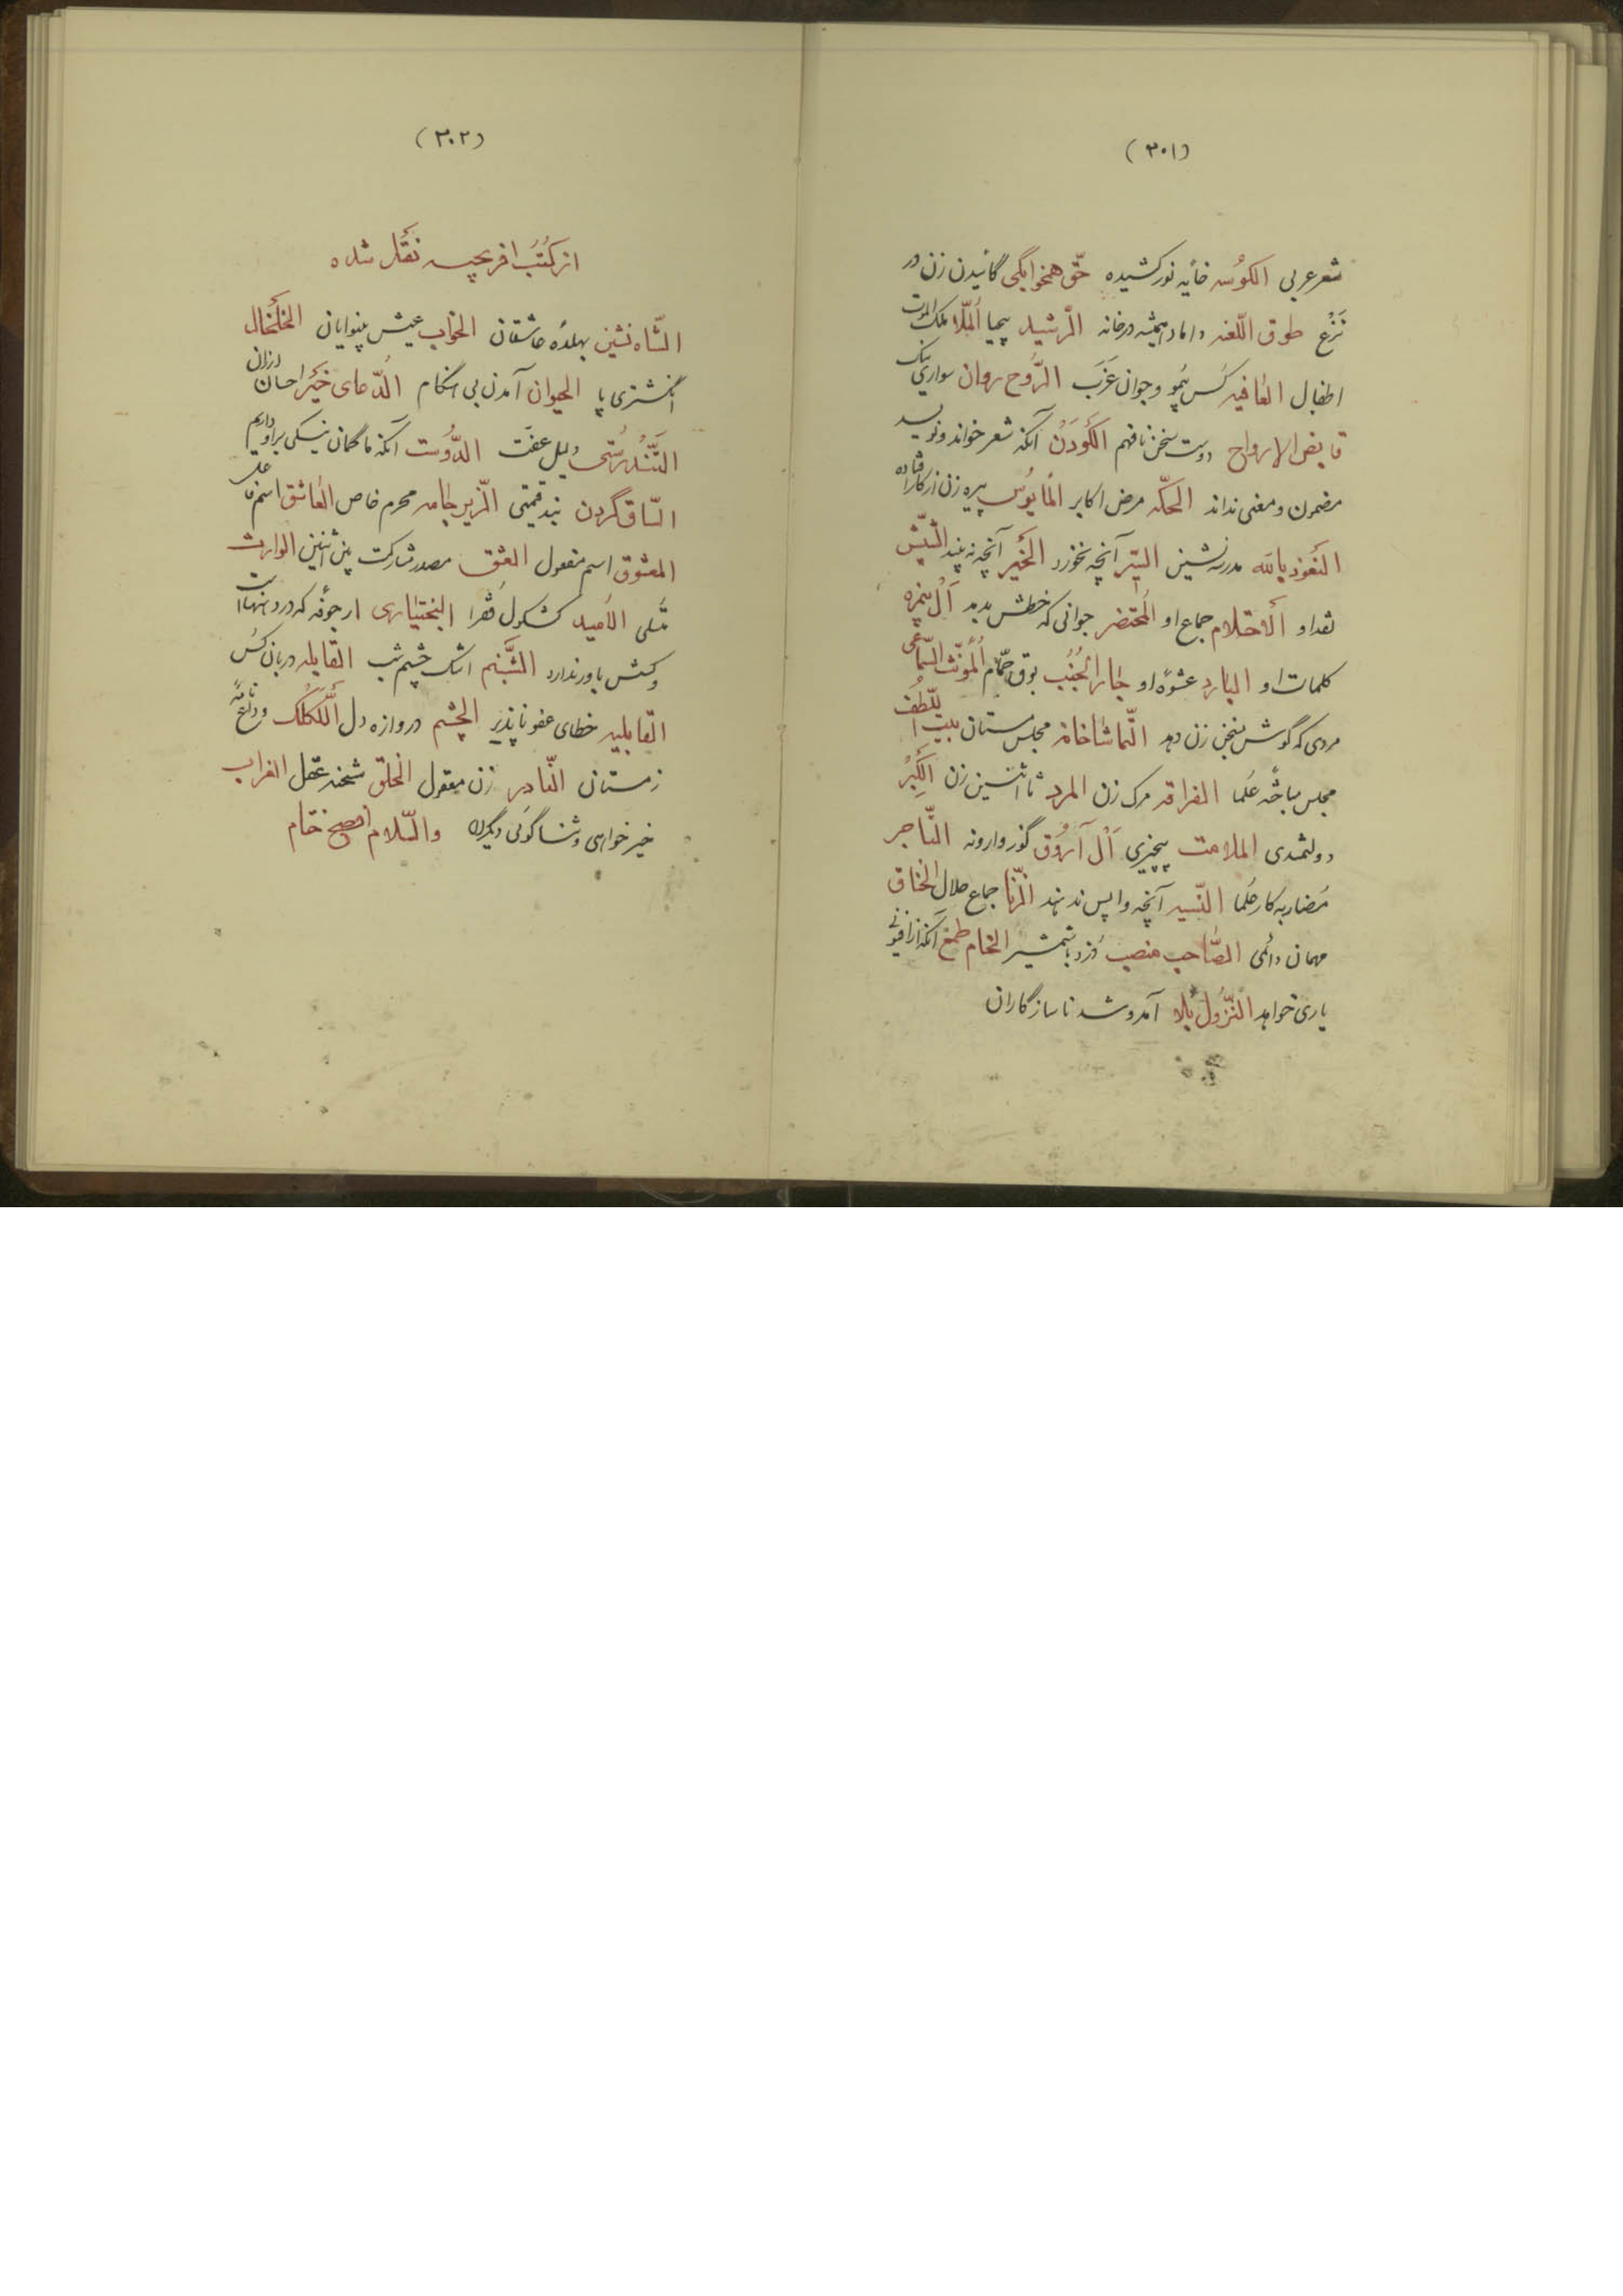 (۳۰۱)
شعر عربی الکوُسه خایه نورکشیده حقّ همخوابگی گائیدن زن در
نَزْع طوق اللّعنه داماد همیشه درخانه الرّشید بیحیا المُلّا ملک الموت
اطفال العافیه کس بیمو و جوان عَزَب الرُّوح روان سواری نیک
قابض الارواح دوست سخن نافهم الکَودَنْ آنکه شعر خواند و نویسد
مضمون و معنی نداند الحکّه مرض اکابر المایوُس پیره زن از کار افتاده
النّعوذ بالله مدرسه نشین السّیر آنچه نخورد الخَیر آنچه نه بیند الشّپش
تعداد الاحتلام جماع او المحتضر جوانی که خطش بدمد آل بیمزه
کلمات او البارد عشوهٔ او جار الجُنُب بوق حمّام المُونّث السّماعی
مردی که گوش بسخن زن دهد التّماشاخانه مجلس مستان بیت اللّطف
مجلس مباحثه عُلما الفراقه مرک زن المرد تا انثیین زن الکَبِرْ
دولتمندی الملامت بیچیزی اَلْ آروُق گوز وارونه التّاجر
مُضاربه کار حکما النّسیه آنچه واپس ندهند الزّنا جماع حلال الخناق
مهمان دائمی الصّاحب منصب دزد با شمشیر الخام طمع آنکه از افیونی
یاری خواهد النّزول بلا آمد و شد ناسازگاران
(۳۰۲)
از کُتُب افرنجیه نقل شده
الشّاه نشین پهلوُی عاشقان الخواب عیش بینوایان الخلخال
انگشتری پا الحیوان آمدن بی هنگام الدّعای خیر احسان ارزان
التّندرستی دلیل عفّت الدّوست آنکه ما گمان نیکی براو داریم
السّاق گردن بند قیمتی الزّیر جامه محرم خاص العاشق اسم فاعل
المعشوق اسم مفعول العشق مصدر مشارکت بین اثنین الوارث
متملی الاُمید کشکول فقرا البختیاری ارجوفه که در دهنها است
و کسش باور ندارد الشّبنم اشک چشم شب القابله دربان کُس
القابلیه خطای عفو ناپذیر الچشم دروازه دل اللکلک وداع نامهٔ
زمستان النّادر زن معقول الخلق شحنه عقل الغراب
خیر خواهی و ثنا گوئی دیگران والسّلام افصح ختام